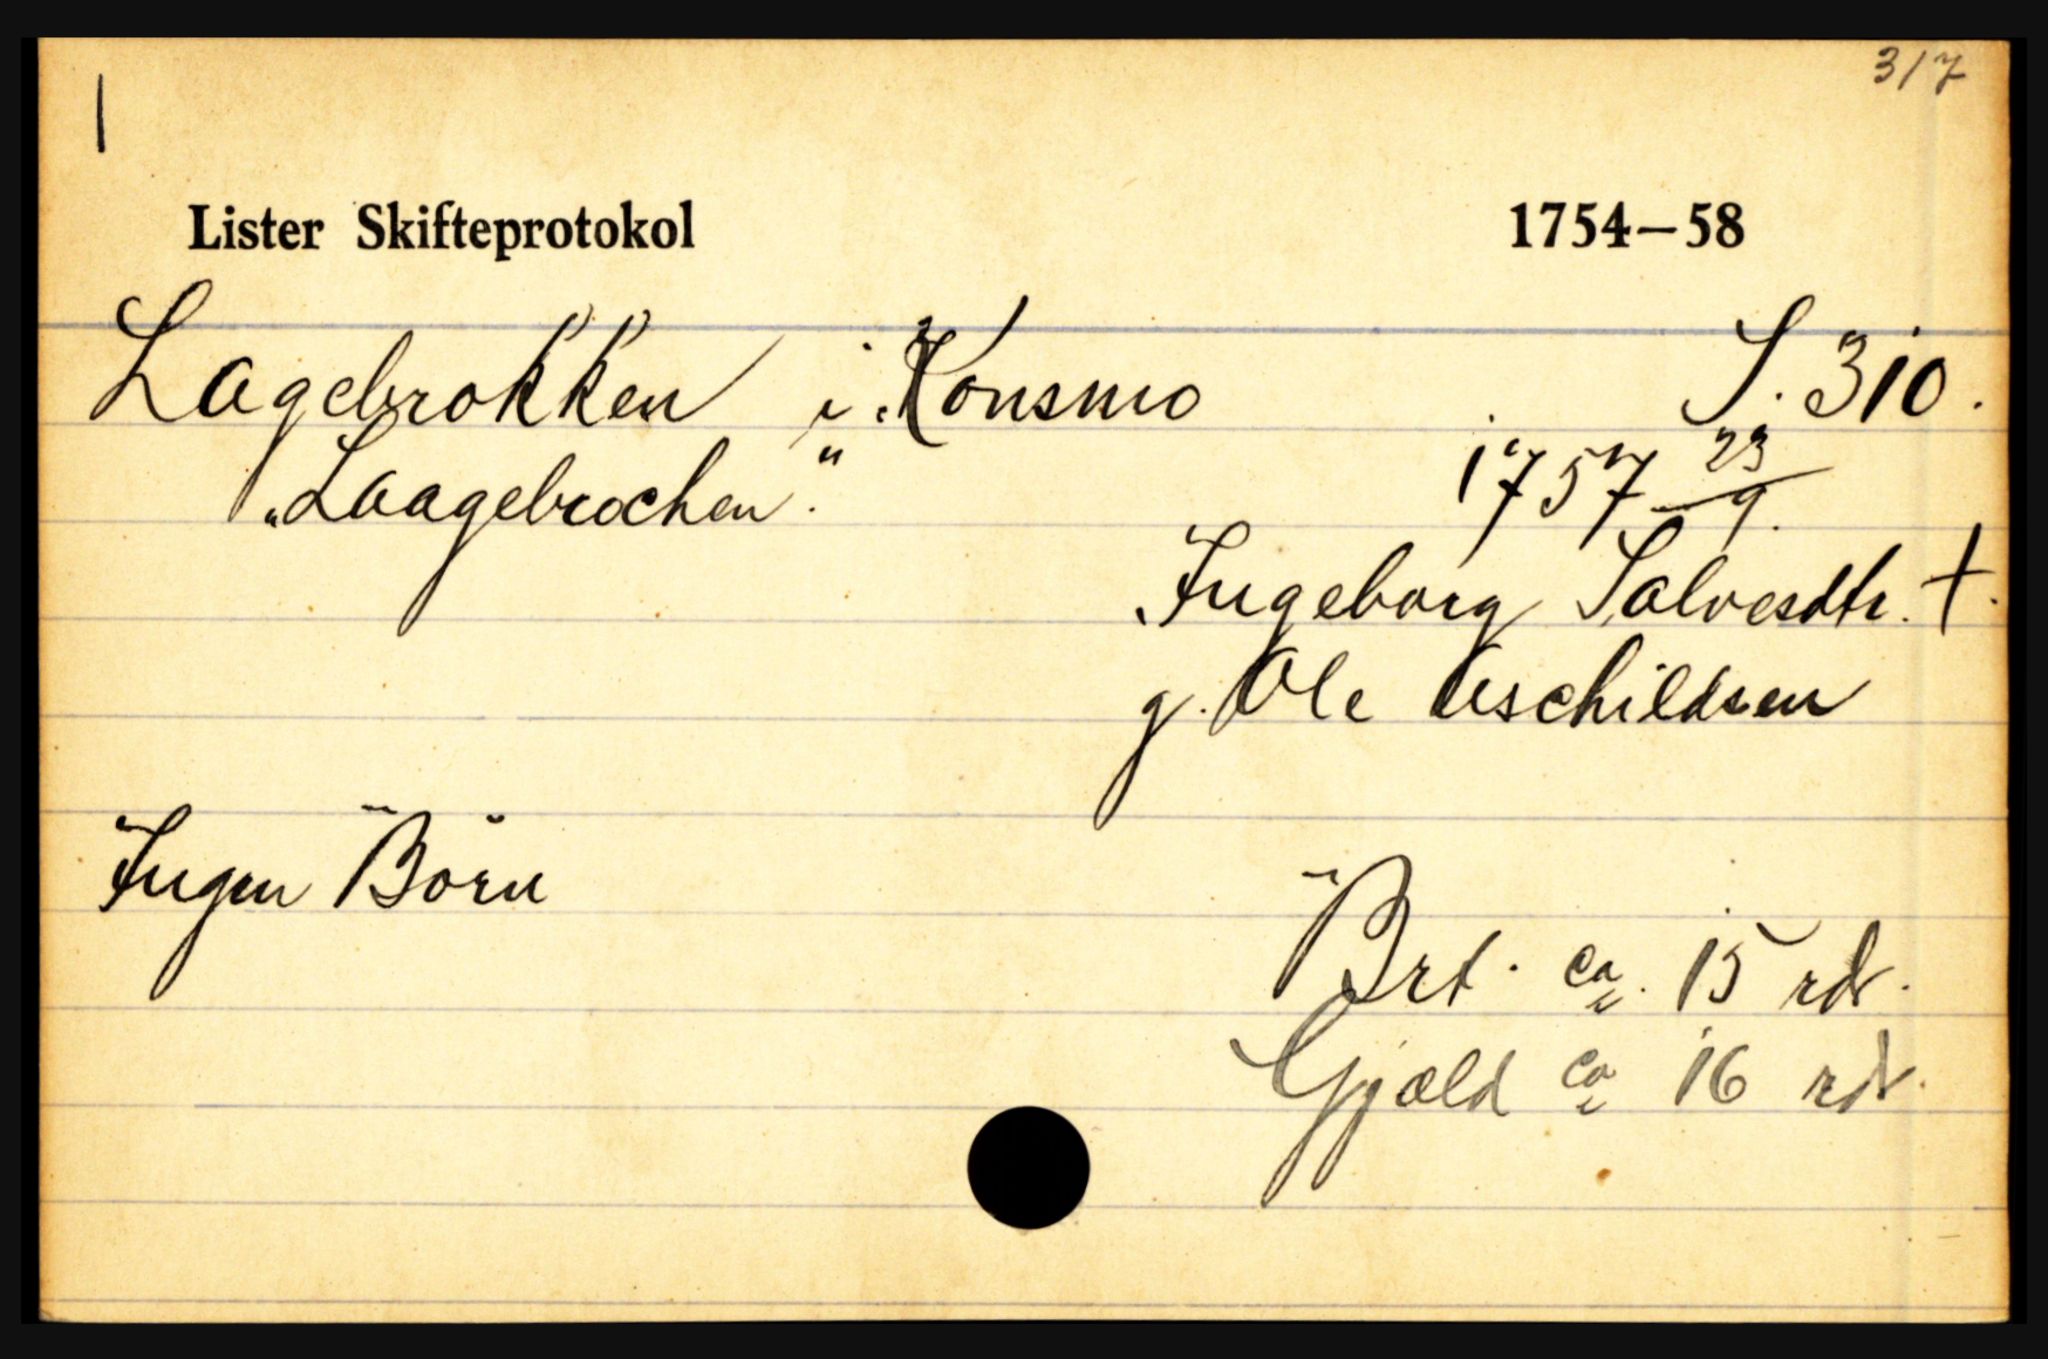 317
Lister Skifteprotokol 1754–58
Lagebrokken i Konsmo S. 310.
„Laagebrochen." 1757 23/9.
Ingeborg Salvesdtr. †.
g. Ole Aschildsen
Ingen Börn
Brt. ca. 15 rdr.
Gjæld ca 16 rdr.